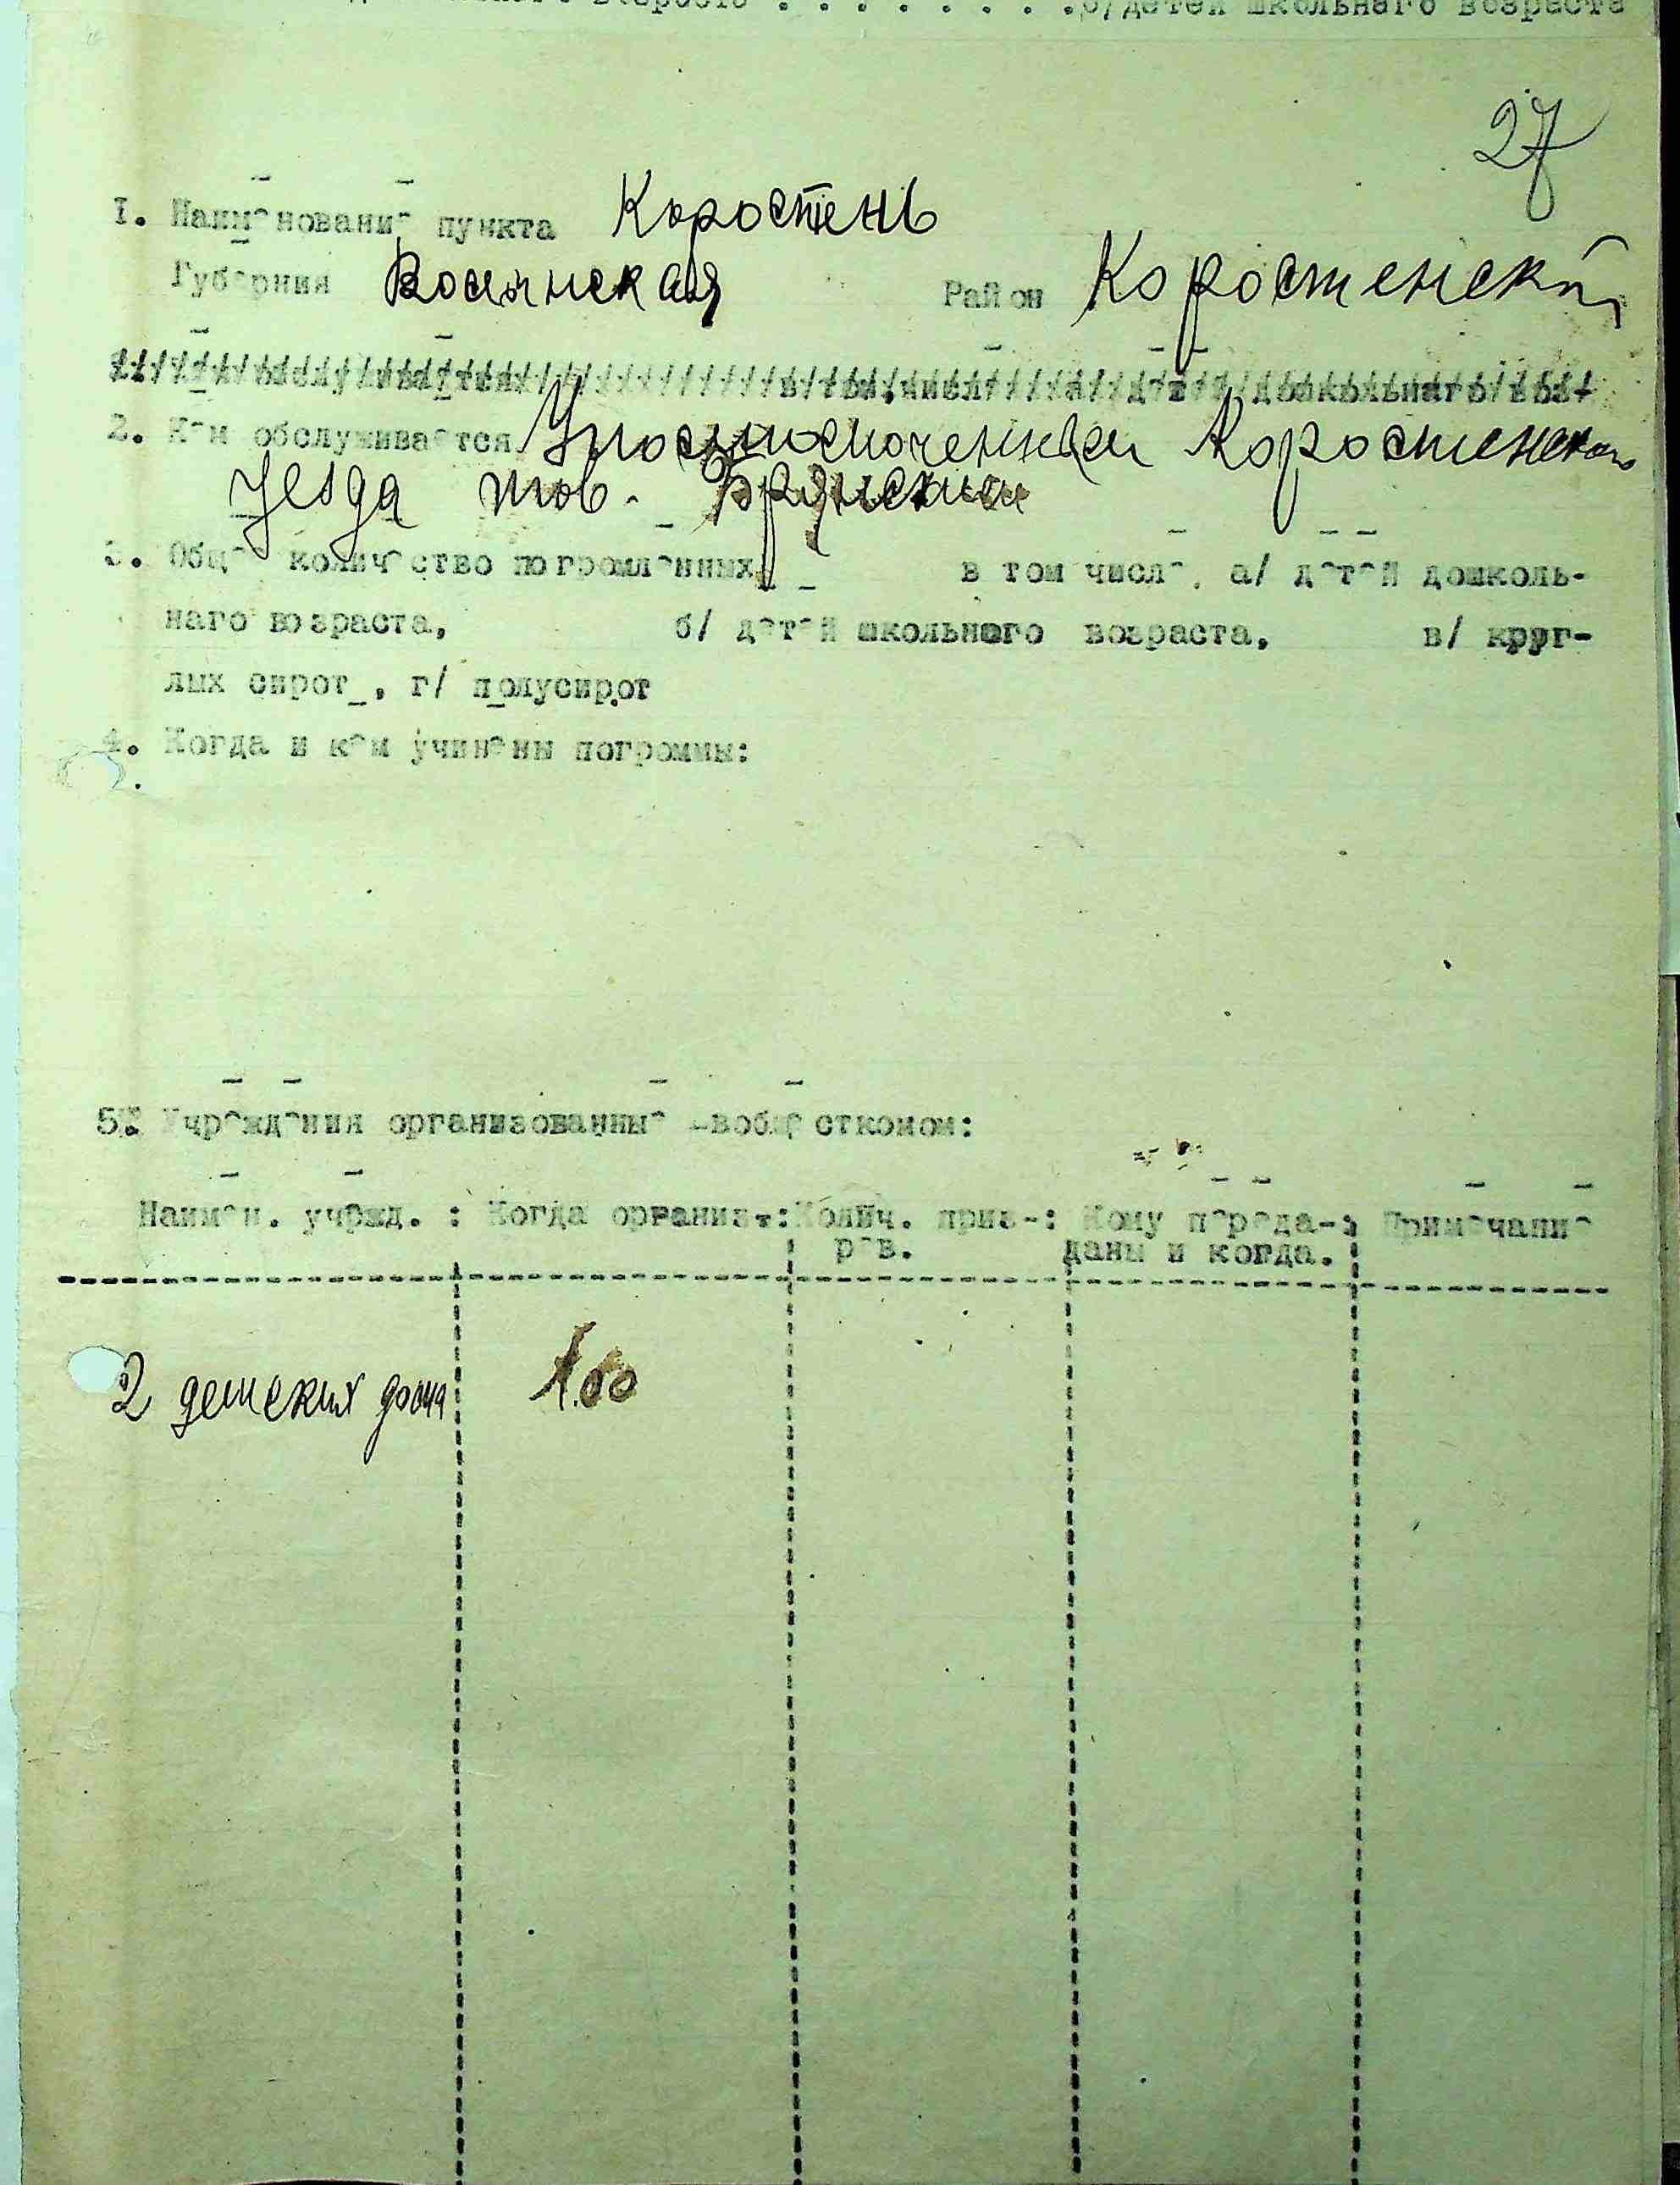 б/детей школьнаго возраста
27
I. Наименование пункта Коростень
Губерния Волынская Район Коростенский
2. Кем обслуживается Уполномоченным Коростенского
уезда тов.
3. Обще количество погромленных, в том числе, а/ детей дошколь-
наго возраста, б/ детей школьного возраста, в/ круг-
лых сирот, г/ полусирот
4. Когда и кем учинены погромы:
5. Учреждения организованные Евобщесткомом:
Наимен. учрежд. : Когда организ-: Колич. приз-: Кому переда-: Примечание
рев. даны и когда.
2 детских дома 100